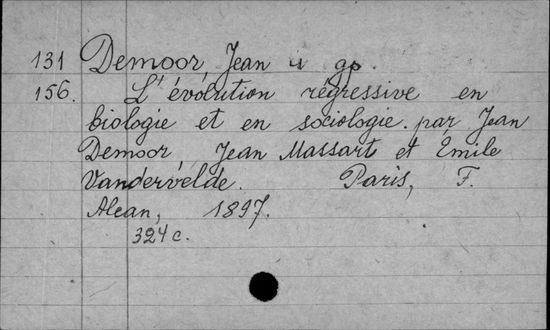 131 Demoor, Jean u gp.
156. L'évolution régressive en
biologie et en sociologie. par Jean
Demoor, Jean Massart et Émile
Vandervelde. Paris, F.
Alcan, 1897.
324 c.